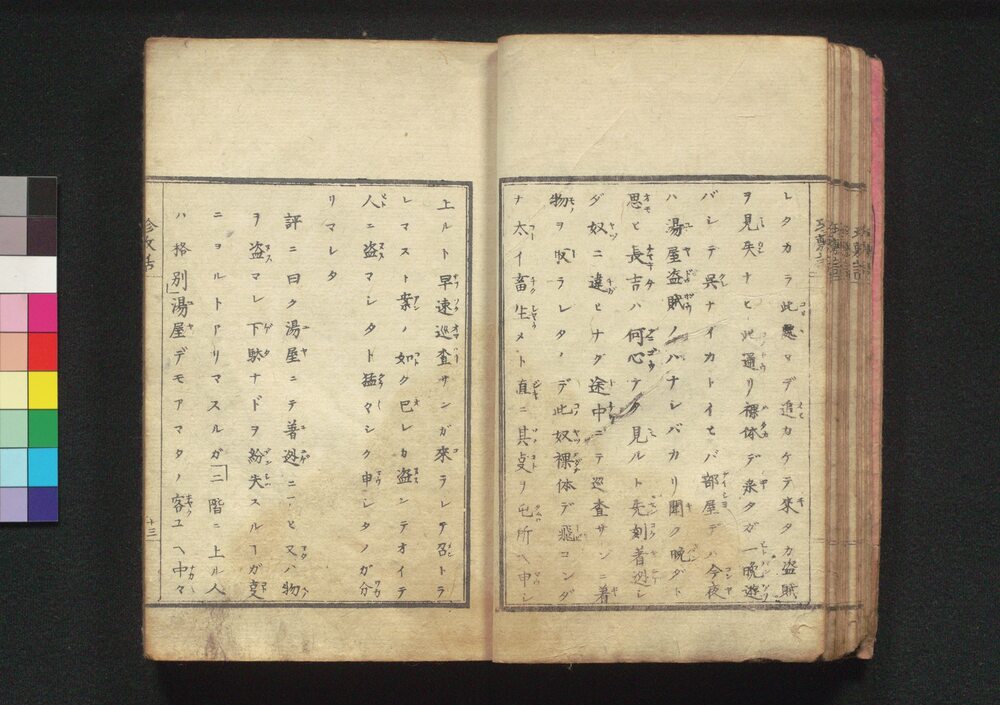 レタカラ此處マデ追カケテ來タカ盗賊
ヲ見失ナヒ此通リ裸体デ来タガ一晩遊
バシテ呉ナイカトイヒバ部屋デハ今夜
ハ湯屋盗賊ノハナシバカリ聞ク晩ダト
思ヒ長吉ハ何心ナク見ルト先刻着逃シ
ダ奴ニ違ヒナク途中ニテ巡査サンニ着
物ヲ取ラレタノデ此奴裸体デ飛コンダ
ナ太イ畜生メト直ニ其㕝ヲ屯所ヘ申シ
上ルト早速巡査サンガ來ラレテ召トラ
レマスト案ノ如ク己レカ盗ンテオイテ
人ニ盗マレタト猛々シク申シタノガ分
リマシタ
評ニ曰ク湯屋ニテ着逃ニアヒ又ハ物
ヲ盗マレ下駄ナドヲ紛失スルヿガ度々
ニヨルトアリマスルガ二階ニ上ル人
ハ格別湯屋デモアマタノ客ユヘ中々
十三